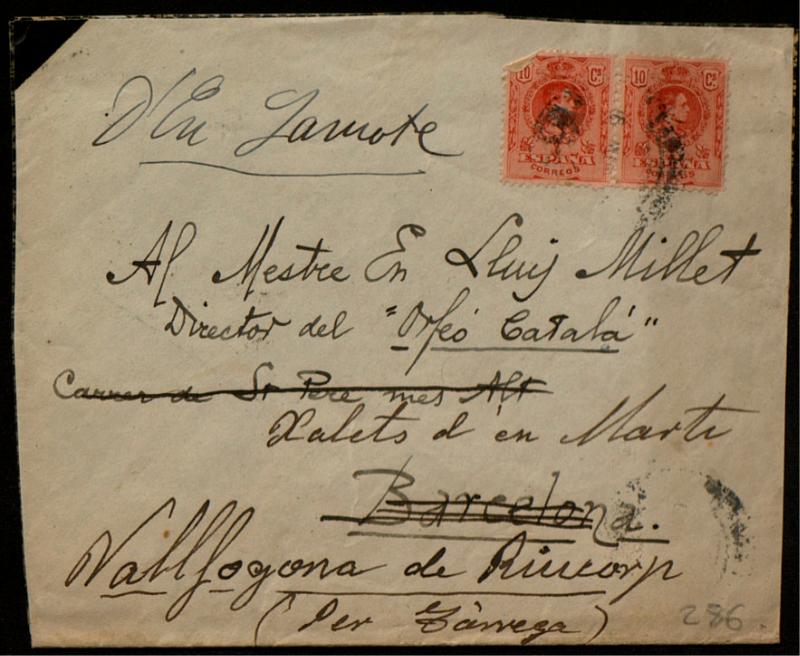 10 Cs 10 Cs
ESPAÑA ESPAÑA
CORREOS CORREOS
D'En Lamote
Al Mestre En Lluis Millet
Director del "Orfeó Catalá"
Carrer de St Pere mes Alt
Xalets d'en Marti
Barcelona.
Vallfogona de Riucorp
(Per Tàrrega)
286